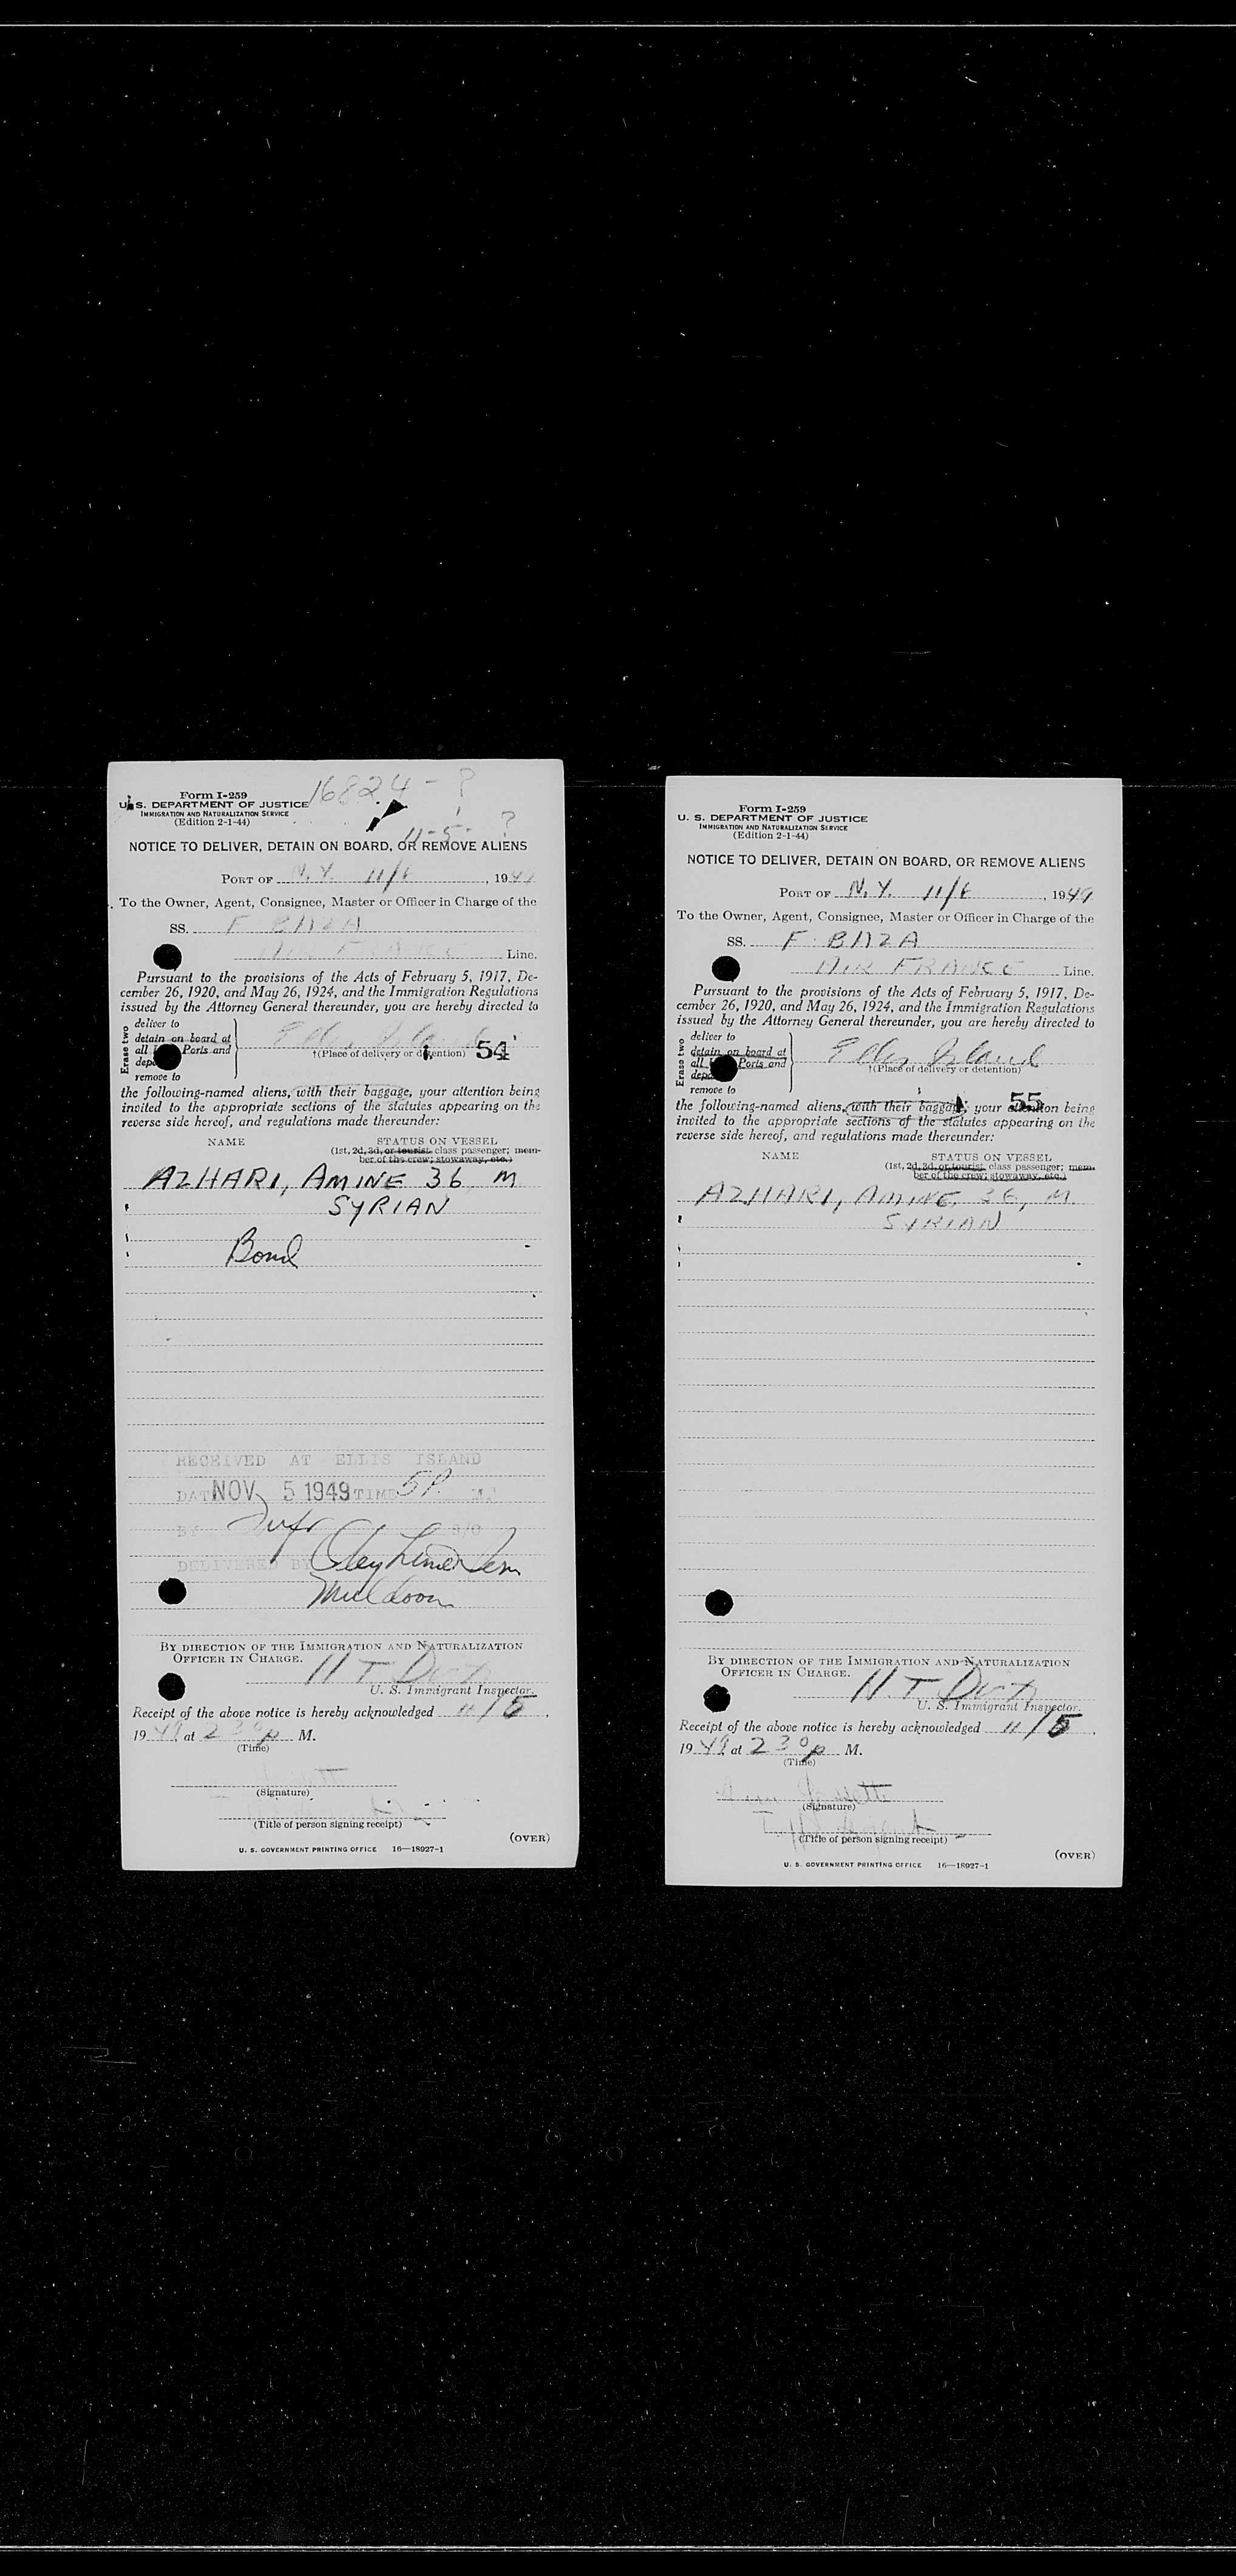 16824-?
Form I-259
U. S. DEPARTMENT OF JUSTICE
IMMIGRATION AND NATURALIZATION SERVICE
(Edition 2-1-44)
11-5- ?
NOTICE TO DELIVER, DETAIN ON BOARD, OR REMOVE ALIENS
PORT OF N.Y. 11/5, 1949
To the Owner, Agent, Consignee, Master or Officer in Charge of the
SS. F BAZA
AIR FRANCE Line.
Pursuant to the provisions of the Acts of February 5, 1917, De-
cember 26, 1920, and May 26, 1924, and the Immigration Regulations
issued by the Attorney General thereunder, you are hereby directed to
Erase two
deliver to
detain on board at
all Ports and
remove to
Ellis Island
†(Place of delivery or detention) 54
the following-named aliens, with their baggage, your attention being
invited to the appropriate sections of the statutes appearing on the
reverse side hereof, and regulations made thereunder:
NAME STATUS ON VESSEL
(1st, 2d, 3d, or tourist class passenger; mem-
ber of the crew; stowaway, etc.)
AZHARI, AMINE 36 M
SYRIAN
Bond
RECEIVED AT ELLIS ISLAND
DATE NOV 5 1949 TIME 5 P. M.
BY
DELIVERED BY
Muldoon
BY DIRECTION OF THE IMMIGRATION AND NATURALIZATION
OFFICER IN CHARGE.
H T
U. S. Immigrant Inspector.
Receipt of the above notice is hereby acknowledged 11/5,
1949 at 2 30 p M.
(Time)
(Signature)
(Title of person signing receipt)
(OVER)
U. S. GOVERNMENT PRINTING OFFICE 16—18927-1
Form I-259
U. S. DEPARTMENT OF JUSTICE
IMMIGRATION AND NATURALIZATION SERVICE
(Edition 2-1-44)
NOTICE TO DELIVER, DETAIN ON BOARD, OR REMOVE ALIENS
PORT OF N.Y. 11/5, 1949
To the Owner, Agent, Consignee, Master or Officer in Charge of the
SS. F BAZA
AIR FRANCE Line.
Pursuant to the provisions of the Acts of February 5, 1917, De-
cember 26, 1920, and May 26, 1924, and the Immigration Regulations
issued by the Attorney General thereunder, you are hereby directed to
Erase two
deliver to
detain on board at
all Ports and
remove to
Ellis Island
†(Place of delivery or detention)
55
the following-named aliens, with their baggage, your attention being
invited to the appropriate sections of the statutes appearing on the
reverse side hereof, and regulations made thereunder:
NAME STATUS ON VESSEL
(1st, 2d, 3d, or tourist class passenger; mem-
ber of the crew; stowaway, etc.)
AZHARI, AMINE, 36, M
SYRIAN
BY DIRECTION OF THE IMMIGRATION AND NATURALIZATION
OFFICER IN CHARGE.
H. T.
U. S. Immigrant Inspector.
Receipt of the above notice is hereby acknowledged 11/5,
1949 at 2 30 p M.
(Time)
(Signature)
(Title of person signing receipt)
(OVER)
U. S. GOVERNMENT PRINTING OFFICE 16—18927-1